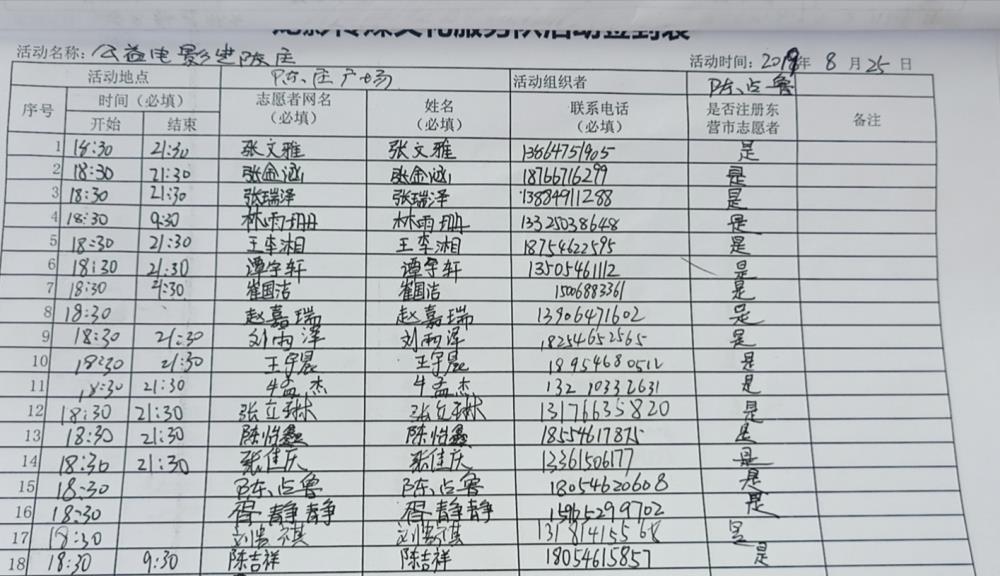 影传媒文化服务队活动签到表
活动名称: 公益电影进陈庄 活动时间: 2019年 8 月 25 日
活动地点 陈庄广场 活动组织者 陈点鲁
序号 时间(必填) 志愿者网名(必填) 姓名(必填) 联系电话(必填) 是否注册东营市志愿者 备注
开始 结束
1 18:30 21:30 张文雅 张文雅 13864751905 是
2 18:30 21:30 张金涵 张金涵 18766716299 是
3 18:30 21:30 张瑞泽 张瑞泽 13884911288 是
4 18:30 9:30 林雨珊 林雨珊 13325038648 是
5 18:30 21:30 王李湘 王李湘 18754622595 是
6 18:30 21:30 谭宇轩 谭宇轩 13505461112 是
7 18:30 21:30 崔国洁 崔国洁 15006883361 是
8 18:30 赵嘉瑞 赵嘉瑞 13906471602 是
9 18:30 21:30 刘雨泽 刘雨泽 18254652565 是
10 18:30 21:30 王宇晨 王宇晨 18954680512 是
11 18:30 21:30 牛孟杰 牛孟杰 13210332631 是
12 18:30 21:30 张立琳 张立琳 13176635820 是
13 18:30 21:30 陈怡鑫 陈怡鑫 18554617875 是
14 18:30 21:30 张佳庆 张佳庆 13361506177 是
15 18:30 陈点鲁 陈点鲁 18054620608 是
16 18:30 程静静 程静静 15965299702 是
17 18:30 13181415568 是
18 18:30 9:30 陈吉祥 陈吉祥 18054615857 是